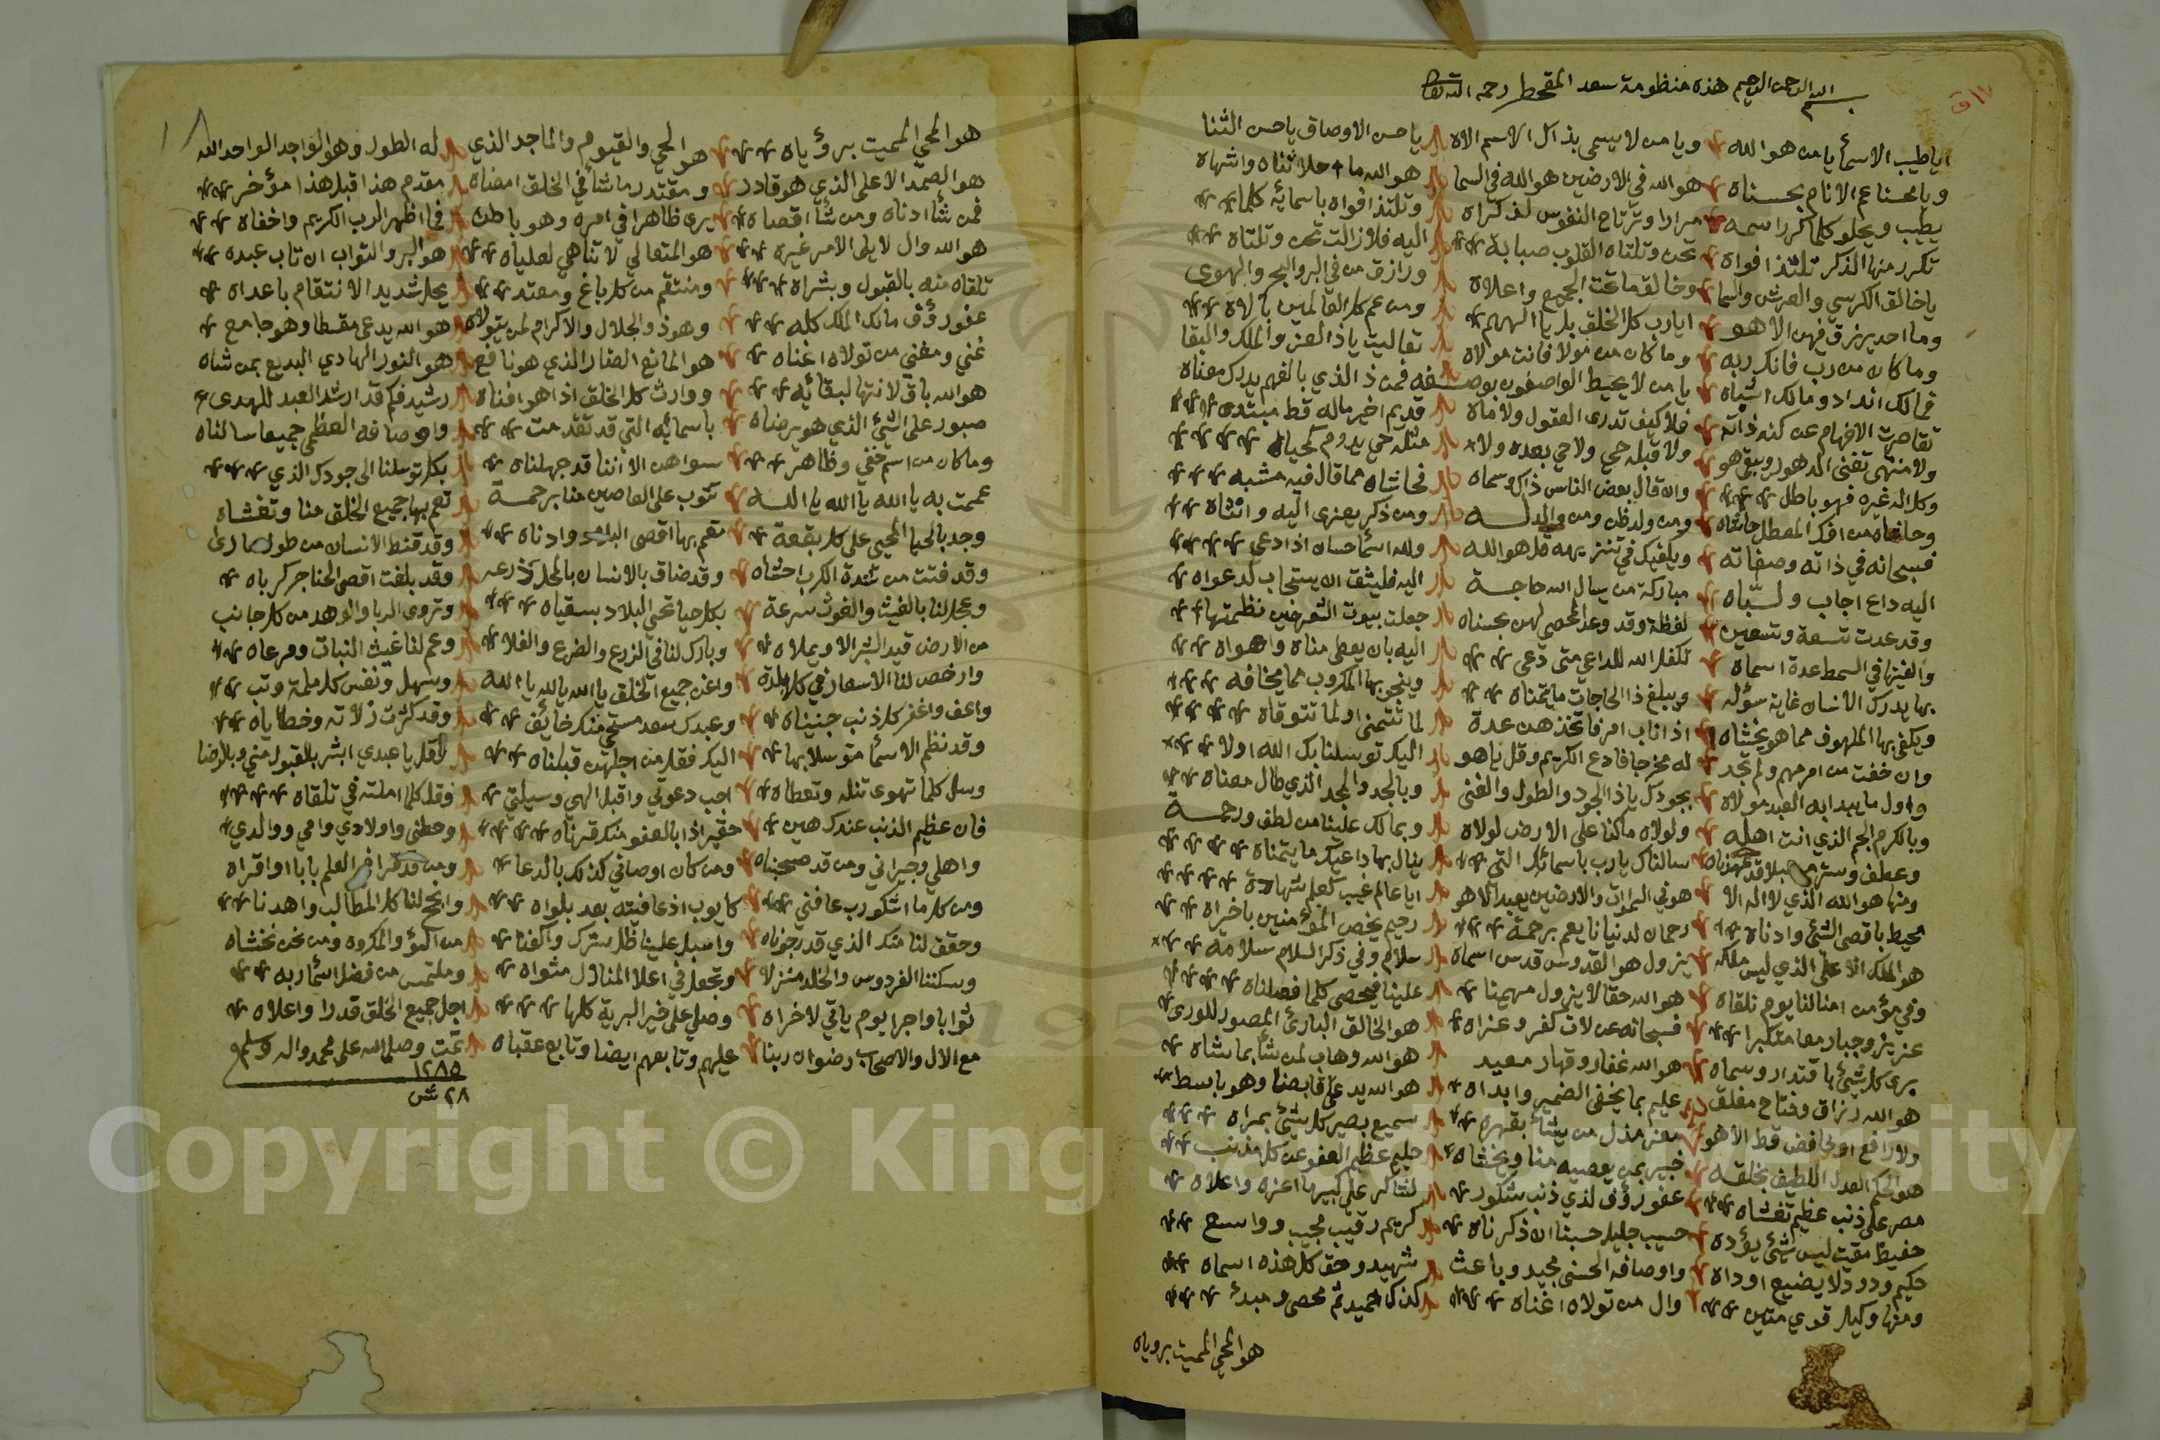 بسم الله الرحمن الرحيم هذه منظومة سعد المقحط رحمه الله تعالى
ايا طيب الاسمأ يا من هو الله ويا من لا يسمى بذاك الاسم الاه يا حسن الاوصاف يا حسن الثنا
ويا محسنا عم الانام بحسناه هو الله في الارضين هو الله في السما هو الله ما احلا ثناه واشهاه
يطيب ويحلو كلما كرر اسمه مرارا وترتاح النفوس لذكراه وتلتذ افواه باسمائه كلما
تكرر منها الذكر تلتذ افواه تحن وتلتاه القلوب صبابة اليه فلا زالت تحن وتلتاه
يا خالق الكرسي والعرش والسما وخالق ما تحت الجميع واعلاه ورازق من في البر والبحر والهوى
وما احد يرزق فيهن الا هو ايا رب كل الخلق بل يا الههم ومن عم كل العالمين بالاه
وما كان من رب فانك ربه وما كان من مولا فانت مولاه تعاليت يا ذا العز والملك والبقا
فما لك انداد وما لك اشباه يا من لا يحيط الواصفون بوصفه فمن ذا الذي بالفهم يدرك معناه
تقاصرت الافهام عن كنه ذاته فلا كيف تدرى العقول ولا ماه قديم اخير ماله قط مبتدى
ولا منتهى تفنى الدهور ويبقى هو ولا قبله حي ولا حي بعده ولا مثله حي يدوم كمحياه
وكل اله غيره فهو باطل وان قال بعض الناس ذاك وسماه فحاشاه مما قال فيه مشبه
وحاشاه من افك المعطل حاشاه ومن ولد ظن ومن والد له ومن ذكر يعزى اليه وانثاه
فسبحانه في ذاته وصفاته ويكفيك في تنزيهه قل هو الله ولله اسمأ حسان اذا دعي
اليه داع اجاب ولباه مباركة من يسال الله حاجة اليه فليثق ان يستجاب لدعواه
وقد عدت تسعة وتسعين لفظة وقد وعد المحصي لهن بحسناه جعلت بيوت الشعر حين نظمتها
والفيتها في السمط عدة اسماه تكفل الله للداعي متى دعي اليه بان يعطى مناه واهواه
بها يدرك الانسان غاية سؤله ويبلغ ذا الحاجات ما يتمناه وينجو بها المكروب مما يخافه
ويكفى بها الملهوف مما هو يخشاه اذا ناب امر فاتخذهن عدة لما تتمنى او لما تتوقاه
وان خفت من امر مهم ولم تجد له مخرجا فادع الكريم وقل يا هو اليك توسلنا بك الله اولا
واول ما يبدا به العبد مولاه بجودك يا ذا الجود والطول والغنى وبالجد والمجد الذي طال معناه
وبالكرم الجم الذي انت اهله ولولاه ما كنا على الارض لولاه وبما لك علينا من لطف ورحمة
وعطف وستر سالناك يا رب باسمائك التي ينال بها داعيك ما يتمناه
ومنها هو الله الذي لا اله الا هو في السموات والارضين يعبد الا هو ايا عالم غيب كعلم شهادة
محيط باقصى الشئ وادناه رحمان لدنيانا يعم برحمة رحيم يخص المؤمنين باخراه
هو الملك الاعلى الذي ليس ملكه يزول هو القدوس قدس اسماه سلام وفي ذكر السلام سلامه
وفي مؤمن امنا لنا يوم نلقاه هو الله حقا لا يزول مهيمنا علينا فيحصى كلما فعلناه
عزيز وجبار معا متكبرا فسبحانه عن لات كفر وعزاه هو الخالق البارئ المصور للورى
برى كل شئ باقتدار وسماه هو الله غفار وقهار معيد هو الله وهاب لمن شأ بما شاه
هو الله رزاق وفتاح مغلق عليم بما يخفى الضمير وابداه هو الله يدعى قابضا وهو باسط
ولا رافع او خافض قط الا هو معز مذل من يشأ بقهره سميع بصير كل شئ بمراه
هو الحكم العدل اللطيف بخلقه خبير بمن يعصيه منا ويخشاه حليم عظيم العفو عن كل مذنب
مصر على ذنب عظيم تغشاه غفور رؤف لذي ذنب شكور لشاكر علي كبير ما اعزه واعلاه
حفيظ مقيت ليس شئ يؤده حسيب جليل حسبنا ان ذكرناه كريم رقيب مجيب وواسع
حكيم ودود لا يضيع اوداه واوصافه الحسنى مجيد وباعث شهيد وحق كل هذه اسماه
ومنها وكيل قوي متين وال من تولاه اغناه كذاك الحميد ثم محصي ومبدئ
هو المحي المميت برؤياه
هو المحي المميت برؤياه هو الحي والقيوم والماجد الذي له الطول وهو الواجد الواحد الله
هو الصمد الاعلى الذي هو قادر ومقتدر ما شأ في الخلق امضاه مقدم هذا قبل هذا مؤخر
فمن شأ ادناه ومن شأ اقصاه يرى ظاهرا في امره وهو باطن فما اظهر الرب الكريم واخفاه
هو الله وال لا يلي الامر غيره هو المتعالي لا تناهي لعلياه هو البر والتواب ان تاب عبده
تلقاه منه بالقبول وبشراه ومنتقم من كل باغ ومعتد يحل شديد الانتقام باعداه
عفو رؤف مالك الملك كله وهو ذو الجلال والاكرام لمن يتولاه هو الله يدعى مقسطا وهو جامع
غني ومغني من تولاه اغناه هو المانع الضار الذي هو نافع هو النور الهادي البديع بمن شاه
هو الله باق لا انتها لبقائه ووارث كل الخلق اذا هو افناه رشيد فكم قد ارشد العبد للهدى
صبور على الشئ الذي هو يرضاه باسمائه التي قد تقدمت واوصافه العظمى جميعا سالناه
وما كان من اسم خفي وظاهر سواهن الا اننا قد جهلناه بكل توسلنا الى جودك الذي
عممت به يا الله يا الله يا الله تتوب على العاصين منا برحمة تعم بها جميع الخلق منا وتغشاه
وجد بالحيا المحيي على كل بقعة تعم بها اقصى البلاد وادناه وقد قنط الانسان من طول ما راى
وقد فتت من شدة الكرب احشاه وقد ضاق بالانسان بالمحل ذرعه وقد بلغت اقصى الحناجر كرباه
وعجل لنا بالغيث والغوث سرعة بكل حيا تحي البلاد بسقياه وتروى الربا والوهد من كل جانب
من الارض قيد الشبر الا ويملاه وبارك لنا في الزرع والضرع والفلا وعم لنا غيث النبات ومرعاه
وارخص لنا الاسعار في كل بلدة واغن جميع الخلق يا الله يا الله يا الله وسهل ونفس كل ملمة وتب
واعف واغفر كل ذنب جنيناه وعبدك سعد مستحي منك خائف وقد كثرت زلاته وخطاياه
وقد نظم الاسمأ متوسلا بها اليك فقل من اجلهن قبلناه فقل يا عبدي ابشر بالقبول مني وبالرضا
وسل كلما تهوى تنله وتعطاه اجب دعوتي واقبل الهي وسيلتي وقل كلما املته في تلقاه
فان عظيم الذنب عندك هين حقير اذا بالعفو منك قرناه وحطني واولادي وامي ووالدي
واهلي وجيراني ومن قد صحبناه ومن كان اوصاني كذلك بالدعا ومن قد قرا في العلم بابا او اقراه
ومن كل ما اشكو رب عافني كايوب اذ عافيته بعد بلواه وانجح لنا كل المطالب واهدنا
وحقق لنا منك الذي قد رجوناه واسبل علينا ظل سترك واكفنا من السوء والمكروه ومن نحن نخشاه
وسكننا الفردوس والخلد منزلا وتجعل في اعلا المنازل مثواه وملتمس من فضل اسمأ ربه
ثوابا واجرا يوم ياتي لاخراه وصلي على خير البرية كلها اجل جميع الخلق قدرا واعلاه
مع الال والاصحاب رضوان ربنا عليهم وتابعهم ايضا وتابع عقباه تمت وصلى الله على محمد واله وسلم
١٢٨٥
٢٨ ش
Copyright © King Saud University
1957